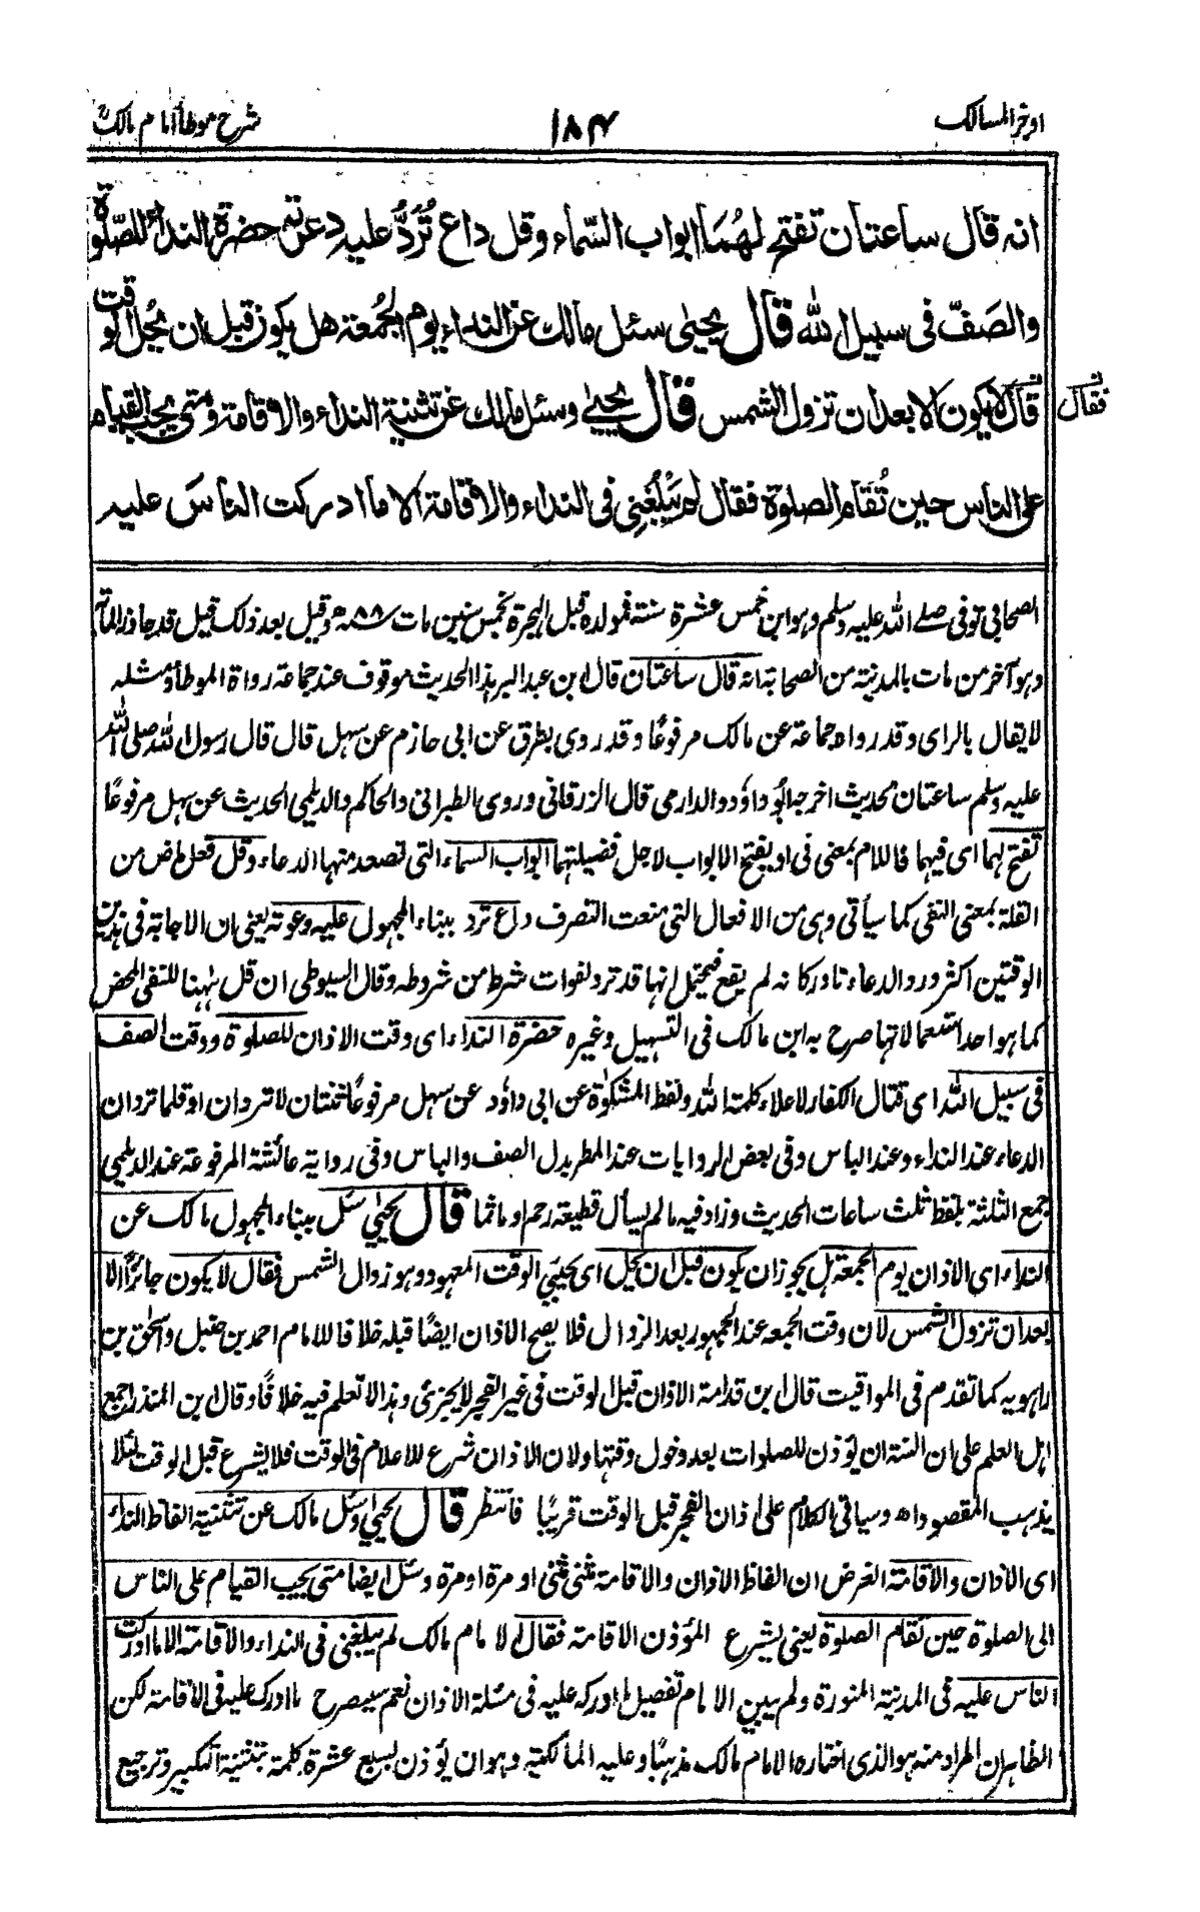 اوجز المسالك
١٨٤
شرح موطأ امام مالك
انه قال ساعتان تفتح لهما ابواب السّماء وقل داع تُرَدُّ عليه دعوته حضرة النداء للصّلوة
والصَفّ فى سبيل الله قال يحيىٰ سئل مالك عن النداء يوم الجُمعة هل يكون قبل ان يَحُلّ الوقت
قال لا يكون الا بعد ان تزول الشمس قال يحيىٰ وسئل مالك عن تثنية النداء والاقامة ومتى يجب القيام
فقال
على الناس حين تُقَام الصلوة فقال لم يَبْلُغْنِى فى النداء والاقامة الا ما ادركت الناسَ عليه
الصحابى توفى صلے الله عليه وسلم وهو ابن خمس عشرة سنة فمولده قبل الهجرة بخمس سنين مات ٨٨ھ وقيل بعد ذلك قيل قد جاوز المأة
وهو آخر من مات بالمدينة من الصحابة انه قال ساعتان قال ابن عبد البر هذا الحديث موقوف عند جماعة رواة الموطأ ومثله
لا يقال بالراى وقد رواه جماعة عن مالك مرفوعًا وقد روى بطرق عن ابى حازم عن سهل قال قال رسول الله صلى الله
عليه وسلم ساعتان الحديث اخرجه ابُو داوٗد والدارمى قال الزرقانى وروى الطبرانى والحاكم والديلمى الحديث عن سهل مرفوعًا
تفتح لهما اى فيهما فاللام بمعنى فى او يفتح الابواب لاجل فضيلتهما ابواب السماء التى تصعد منها الدعاء وقل فعل ماض من
القلة بمعنى النفى كما سيأتى وهى من الافعال التى منعت التصرف داع ترد ببناء المجهول عليه دعوة يعنى ان الاجابة فى هذين
الوقتين اكثر ورد الدعاء نادر كانه لم يقع فيحتمل انها قد ترد لفوات شرط من شروطه وقال السيوطى ان قل ههنا للنفى المحض
كما هو احد استعمالاتها صرح به ابن مالك فى التسهيل وغيره حضرة النداء اى وقت الاذان للصلوة ووقت الصف
فى سبيل الله اى قتال الكفار لاعلاء كلمة الله ولفظ المشكوٰة عن ابى داؤد عن سهل مرفوعًا ثنتان لا تردان او قلما تردان
الدعاء عند النداء وعند الباس وفى بعض الروايات عند المطر بدل الصف والباس وفى رواية عائشة المرفوعة عند الديلمى
جمع الثلثة بلفظ ثلث ساعات الحديث وزاد فيه مالم يسأل قطيعة رحم او ماثما قال يحيىٰ سئل ببناء المجهول مالك عن
النداء اى الاذان يوم الجمعة هل يجوز ان يكون قبل ان يحل اى يجيئى الوقت المعهود وهو زوال الشمس فقال لا يكون جائزًا الا
بعد ان تزول الشمس لان وقت الجمعة عند الجمهور بعد الزوال فلا يصح الاذان ايضًا قبله خلافا للامام احمد بن حنبل واسحٰق بن
راهويه كما تقدم فى المواقيت قال ابن قدامة الاذان قبل الوقت فى غير الفجر لا يجزئ وهذا لا نعلم فيه خلافًا وقال ابن المنذر اجمع
اهل العلم على ان السنة ان يؤذن للصلوات بعد دخول وقتها ولان الاذان شرع للاعلام فى الوقت فلا يشرع قبل الوقت لئلا
يذهب المقصود اھ وسياتى الكلام على اذان الفجر قبل الوقت قريبًا فانتظر قال يحيىٰ وسئل مالك عن تثنية الفاظ النداء
اى الاذان والاقامة الغرض ان الفاظ الاذان والاقامة مثنى مثنى او مرة او مرة وسئل ايضا متى يجب القيام على الناس
الى الصلوة حين تقام الصلوة يعنى يشرع المؤذن الاقامة فقال الامام مالك لم يبلغنى فى النداء والاقامة الا ما ادركت
الناس عليه فى المدينة المنورة ولم يبين الامام تفصيل ما ادركه عليه فى مسئلة الاذان نعم سيصرح ما ادرك عليه فى الاقامة لكن
الظاهر ان المراد منه هو الذى اختاره الامام مالك مذهبًا وعليه المالكية وهو ان يؤذن بسبع عشرة كلمة بتثنية التكبير وترجيع